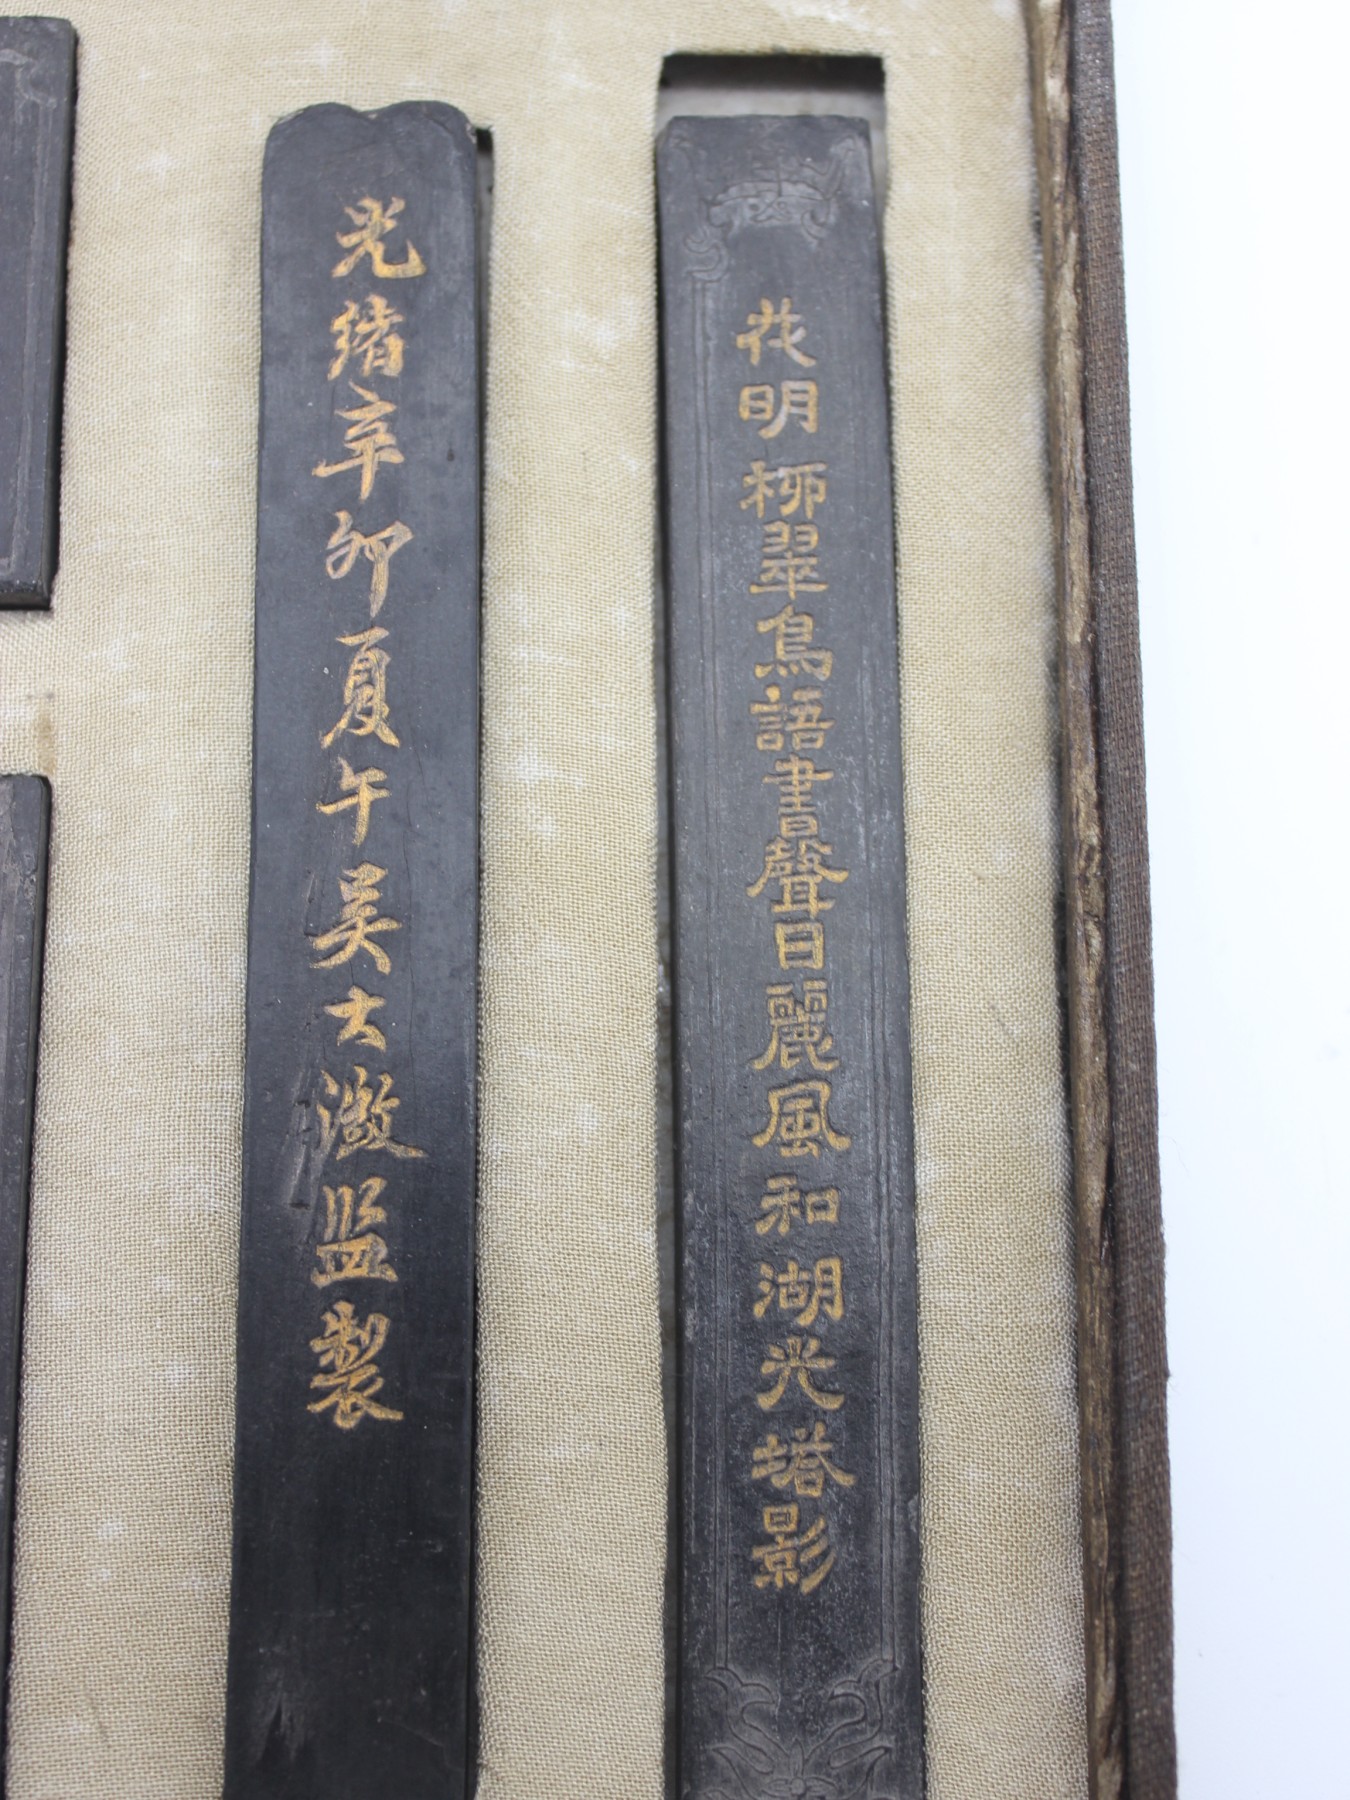 花明柳翠鳥語書聲日麗風和湖光塔影
光緒辛卯夏午吳大澂监製